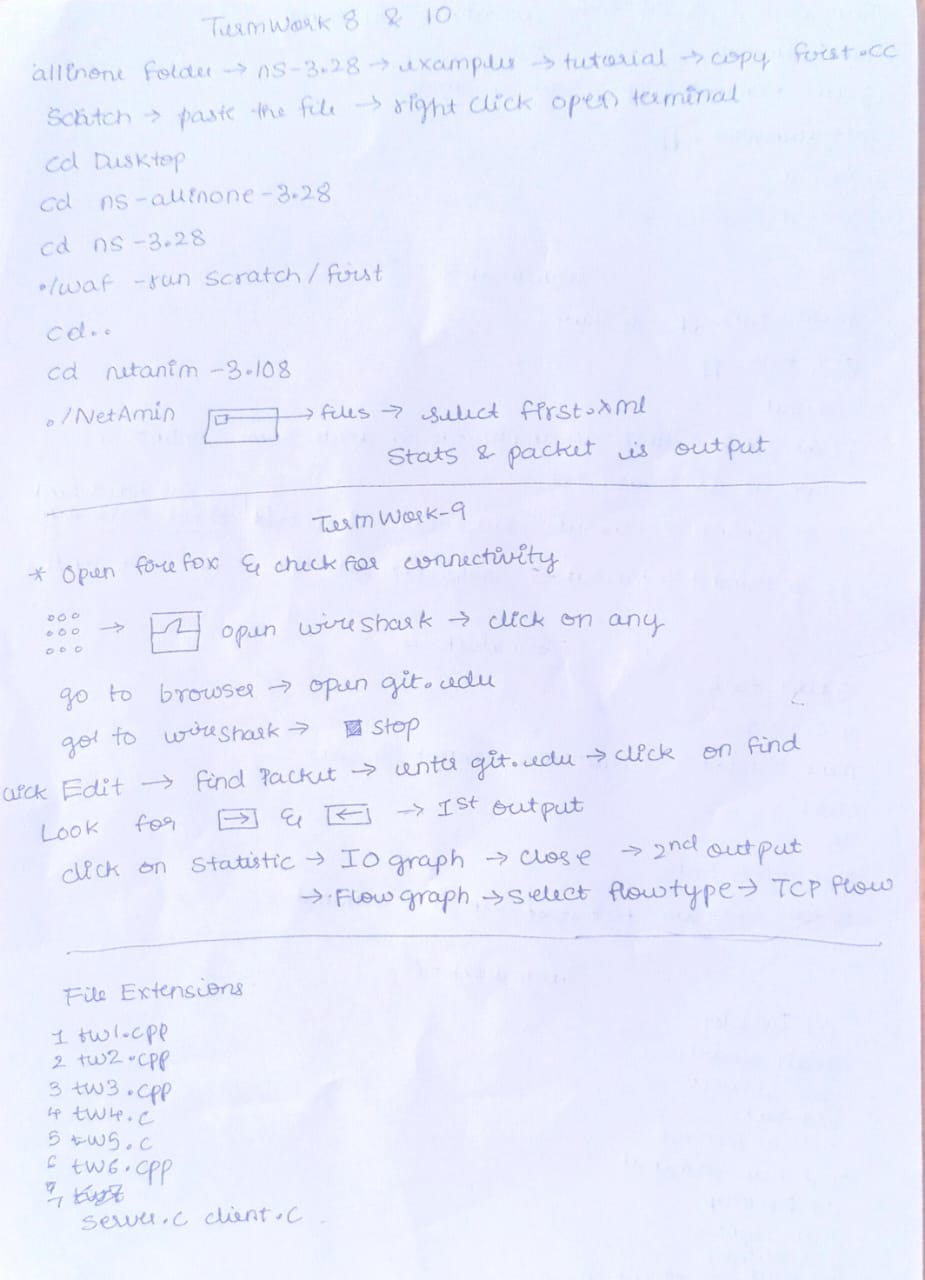 TermWork 8 & 10
allinone folder → ns-3.28 → examples → tutorial → copy first.cc
Scratch → paste the file → right click open terminal
cd Desktop
cd ns-allinone-3.28
cd ns-3.28
./waf -run scratch/first
cd..
cd netanim-3.108
./NetAmin → files → select first.xml
Stats & packet is output
TermWork-9
* Open firefox & check for connectivity
→ open wireshark → click on any
go to browser → open git.edu
got to wireshark → stop
click Edit → find Packet → enter git.edu → click on find
Look for → & ← → 1st output
click on Statistic → IO graph → close → 2nd output
→ Flow graph → select flow type → TCP flow
File Extensions
1 tw1.cpp
2 tw2.cpp
3 tw3.cpp
4 tw4.c
5 tw5.c
6 tw6.cpp
7
server.c client.c